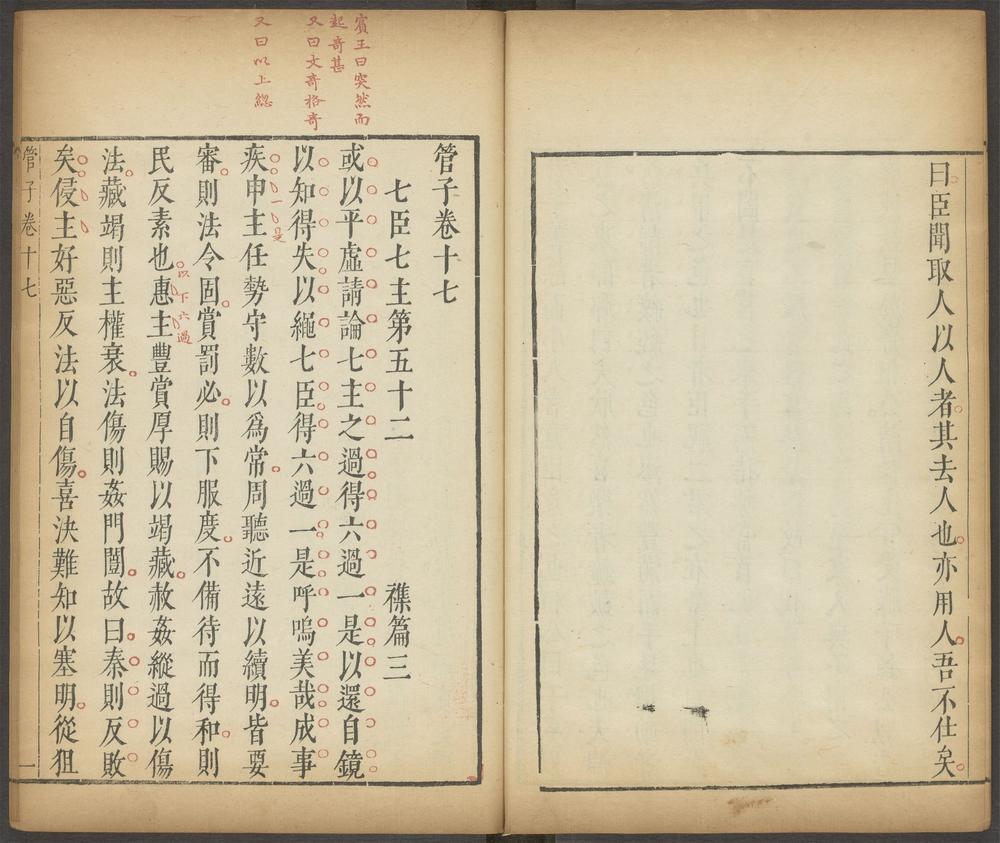 曰臣聞取人以人者其去人也亦用人吾不仕矣
賓王曰突然而
起奇甚
又曰文奇格奇
又曰以上總
管子卷十七
七臣七主第五十二 襍篇三
或以平虛請論七主之過得六過一是以還自鏡
以知得失以繩七臣得六過一是呼嗚美哉成事
疾申主任勢守數以爲常周聽近遠以續明皆要
一是
審則法令固賞罰必則下服度不備待而得和則
民反素也惠主豐賞厚賜以竭藏赦姦縱過以傷
以下六過
法藏竭則主權衰法傷則姦門闓故曰泰則反敗
矣侵主好惡反法以自傷喜決難知以塞明從狙
管子卷十七
一